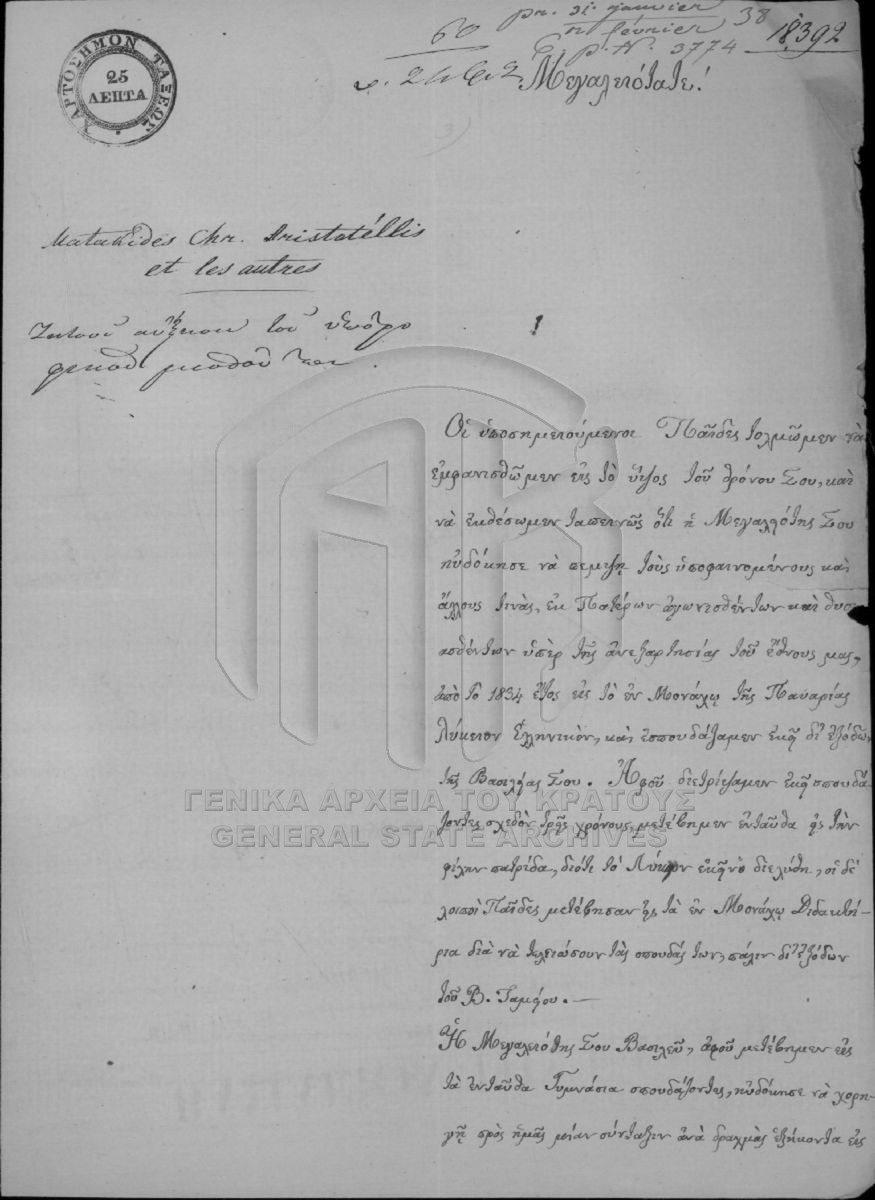 ΧΑΡΤΟΣΗΜΟΝ ΤΑΞΕΩΣ
25
ΛΕΠΤΑ
pr. 31 janvier 38
12 février
60
p. N. 3774
18392
Μεγαλειότατε!
Matakides Chr. Aristotéllis
et les autres
Ζητοῦν αὔξησιν τοῦ ὑποτρο
φικοῦ μισθοῦ των.
Οἱ ὑποσημειούμενοι Παῖδες τολμῶμεν νὰ
ἐμφανισθῶμεν εἰς τὸ ὕψος τοῦ θρόνου Σου, καὶ
νὰ ἐκθέσωμεν ταπεινῶς ὅτι ἡ Μεγαλειότης Σου
ηὐδόκησε νὰ πέμψῃ τοὺς ὑποφαινομένους καὶ
ἄλλους τινὰς, ἐκ Πατέρων ἀγωνισθέντων καὶ θυσι
ασθέντων ὑπὲρ τῆς ἀνεξαρτησίας τοῦ ἔθνους μας,
ἀπὸ τὸ 1834 ἔτος εἰς τὸ ἐν Μονάχῳ τῆς Παυαρίας
Λύκειον Ἑλληνικὸν, καὶ ἐσπουδάζαμεν ἐκεῖ δι' ἐξόδων
τῆς Βασιλείας Σου. Ἀφοῦ διετρίψαμεν ἐκεῖ σπουδά
ζοντες σχεδὸν τρεῖς χρόνους, μετέβημεν ἐνταῦθα εἰς τὴν
φίλην πατρίδα, διότι τὸ Λύκειον ἐκεῖνο διελύθη, οἱ δὲ
λοιποὶ Παῖδες μετέβησαν εἰς τὰ ἐν Μονάχῳ Διδακτή-
ρια διὰ νὰ τελειώσουν τὰς σπουδάς των, πάλιν δι' ἐξόδων
τοῦ Β. Ταμείου. —
Ἡ Μεγαλειότης Σου Βασιλεῦ, ἀφοῦ μετέβημεν εἰς
τὰ ἐνταῦθα Γυμνάσια σπουδάζοντες, ηὐδόκησε νὰ χορη
γῇ πρὸς ἡμᾶς μίαν σύνταξιν ἀνὰ δραχμὰς ἑξήκοντα εἰς
ΓΕΝΙΚΑ ΑΡΧΕΙΑ ΤΟΥ ΚΡΑΤΟΥΣ
GENERAL STATE ARCHIVES